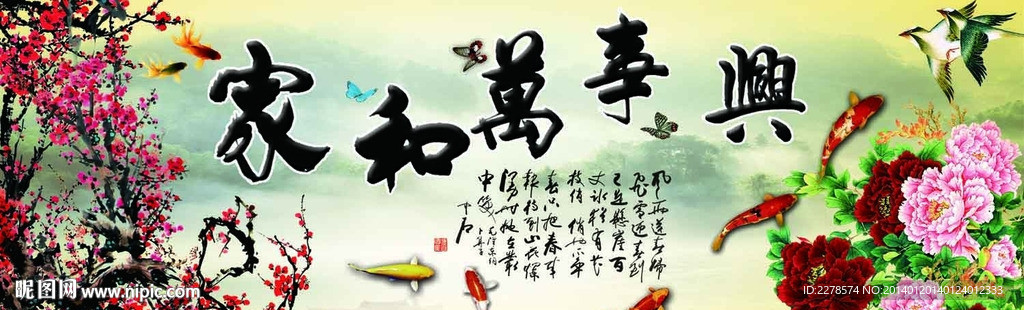 家和萬事興
風雨送春歸
飛雪迎春到
已是懸崖百
丈冰猶有花
枝俏俏也不争
春只把春来
報待到山花爛
漫时她在叢
中笑
昵图网 www.nipic.com
ID:2278574 NO:20140120140124012333